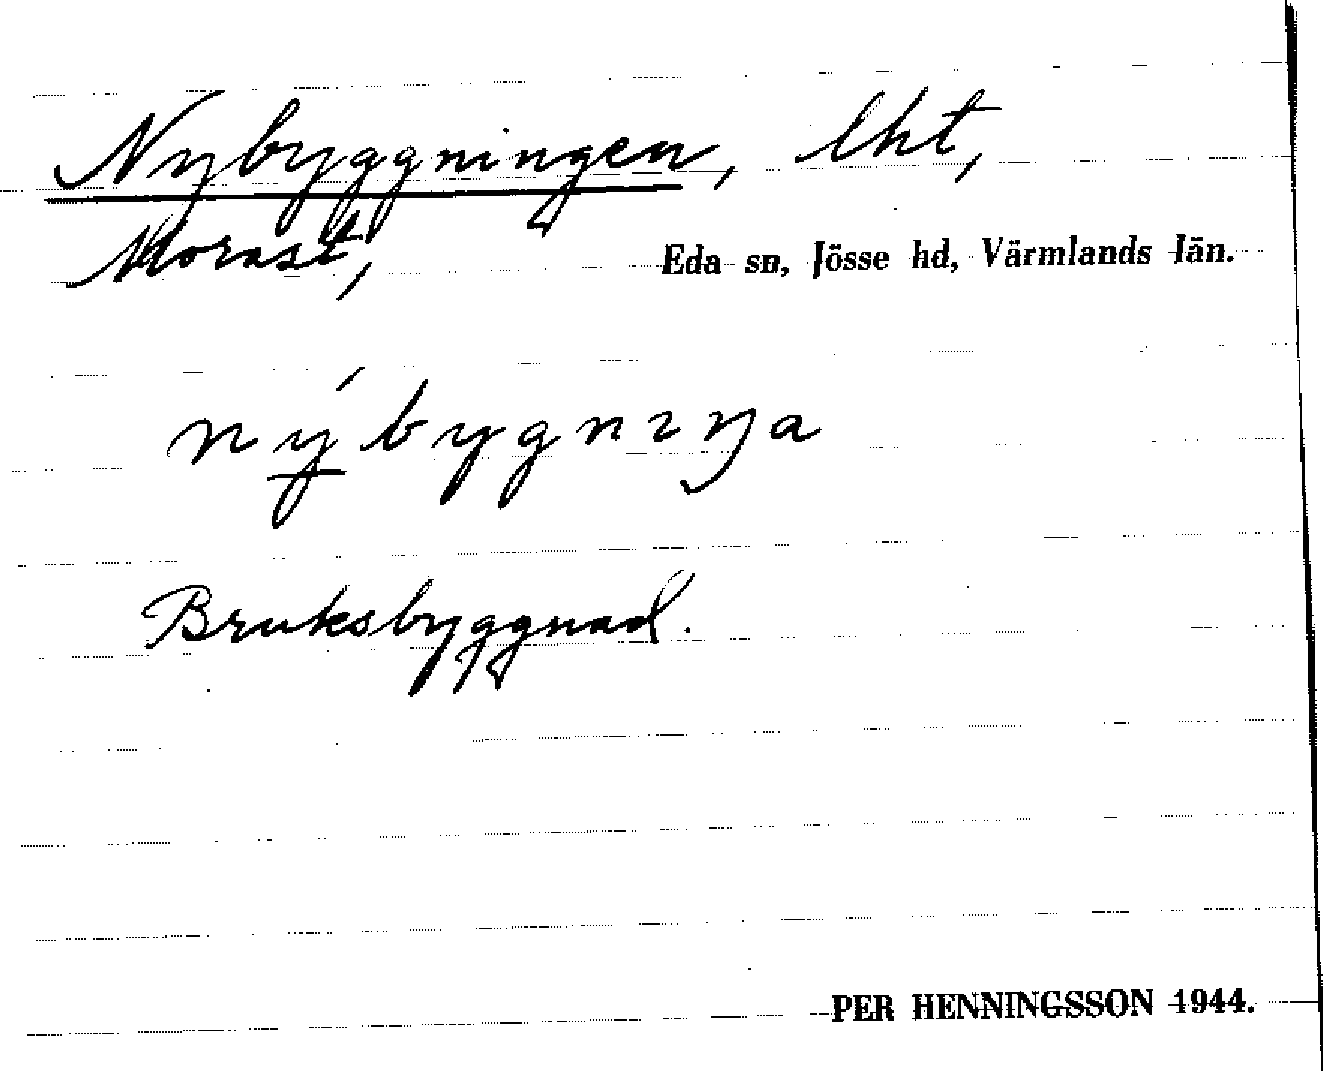 Nybyggningen, lht,
Morast, Eda sn, Jösse hd, Värmlands län.
nýbygnıŋa
Bruksbyggnad.
PER HENNINGSSON 1944.